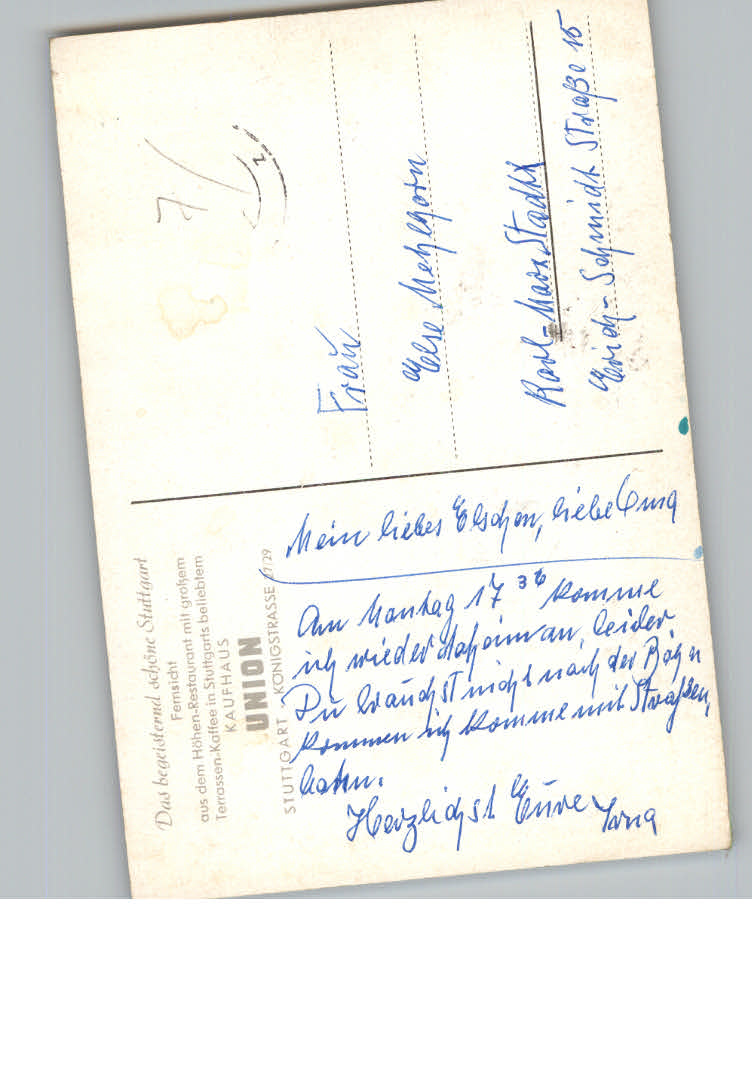 Das begeisternd schöne Stuttgart
Fernsicht
aus dem Höhen-Restaurant mit großem
Terrassen-Kaffee in Stuttgarts beliebtem
KAUFHAUS
UNION
STUTTGART KÖNIGSTRASSE 27/29
Mein liebes Elschen, liebe
Am Montag 17 36 komme
ich wieder daheim an, leider
Du brauchst nicht nach der Bahn
kommen ich komme mit Straßen,
bahn.
Herzlichst Eure
Frau
Else Mehlhorn
Karl-Marx Stadt
Erich-Schmidt Straße 15
7